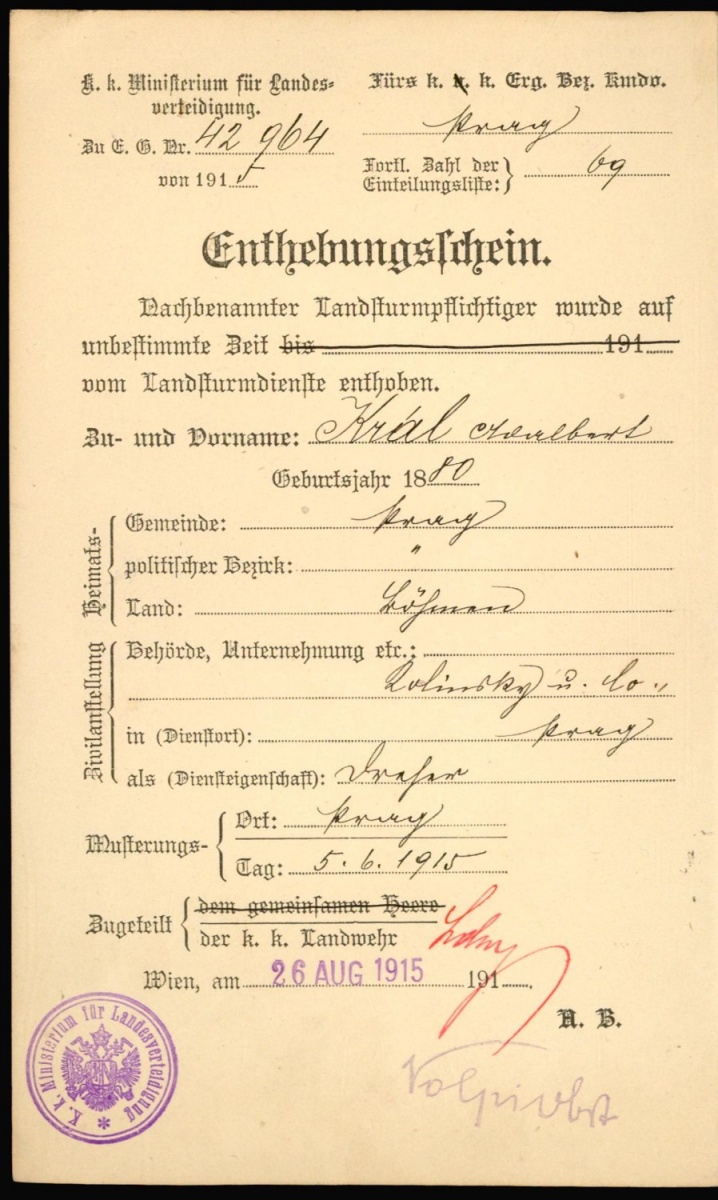 K. k. Ministerium für Landes-
verteidigung.
Zu E. G. Nr. 42 964
von 1915
Fürs k. u. k. Erg. Bez. Kmdo.
Prag
Fortl. Zahl der
Einteilungsliste: 69
Enthebungsschein.
Nachbenannter Landsturmpflichtiger wurde auf
unbestimmte Zeit bis 191
vom Landsturmdienste enthoben.
Zu- und Vorname: Král Adalbert
Geburtsjahr 1880
Heimats-
Gemeinde: Prag
politischer Bezirk: "
Land: Böhmen
Zivilanstellung
Behörde, Unternehmung etc.:
Kolinsky u. Co.,
in (Dienstort): Prag
als (Diensteigenschaft): Dreher
Musterungs-
Ort: Prag
Tag: 5. 6. 1915
Zugeteilt
dem gemeinsamen Heere
der k. k. Landwehr
Wien, am 26 AUG 1915 191
A. B.
K. k. Ministerium für Landesverteidigung